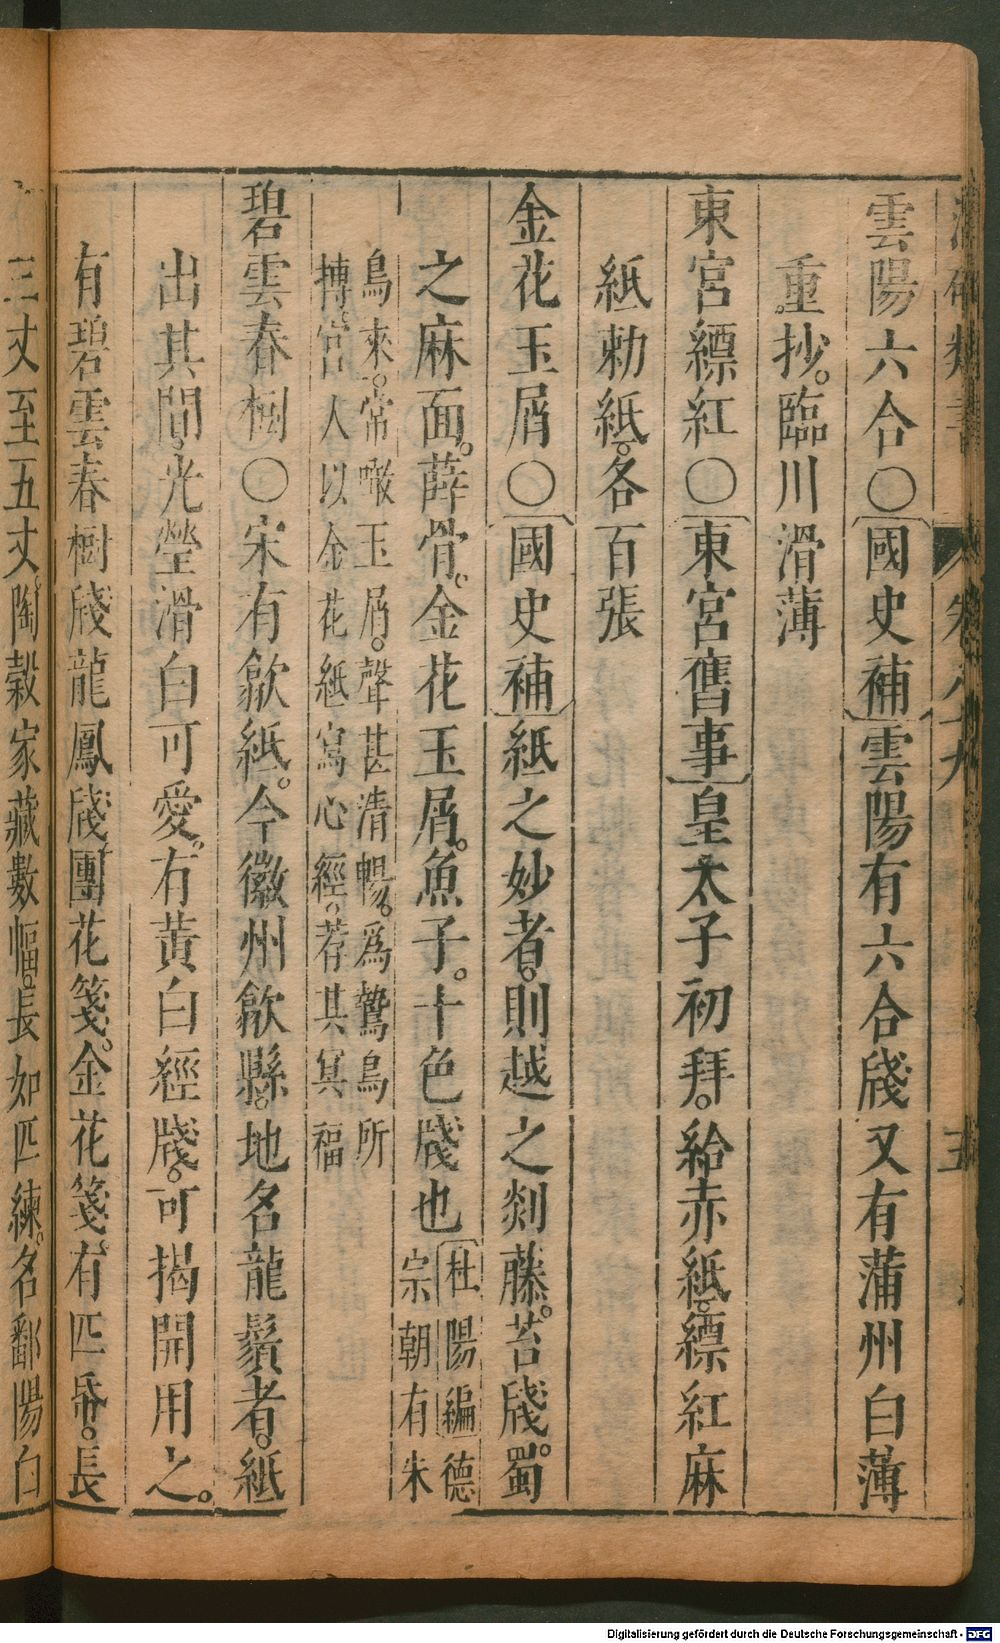 卷八十九 五
雲陽六合○國史補雲陽有六合牋又有蒲州白薄
重抄。臨川滑薄
東宮縹紅○東宮舊事皇太子初拜。給赤紙。縹紅麻
紙勅紙。各百張
金花玉屑○國史補紙之妙者。則越之剡藤。苔牋。蜀
之麻面。薛骨。金花玉屑。魚子。十色牋也杜陽編德
宗朝有朱
鳥來。常噉玉屑。聲甚清暢。爲鷙鳥所
搏。宮人以金花紙寫心經。荐其冥福
碧雲春樹○宋有歙紙。今徽州歙縣。地名龍鬚者。紙
出其間。光瑩滑白可愛。有黃白經牋。可揭開用之。
有碧雲春樹牋龍鳳牋團花箋。金花箋。有匹帋。長
三丈至五丈。陶穀家藏數幅。長如匹練。名鄱陽白
Digitalisierung gefördert durch die Deutsche Forschungsgemeinschaft - DFG